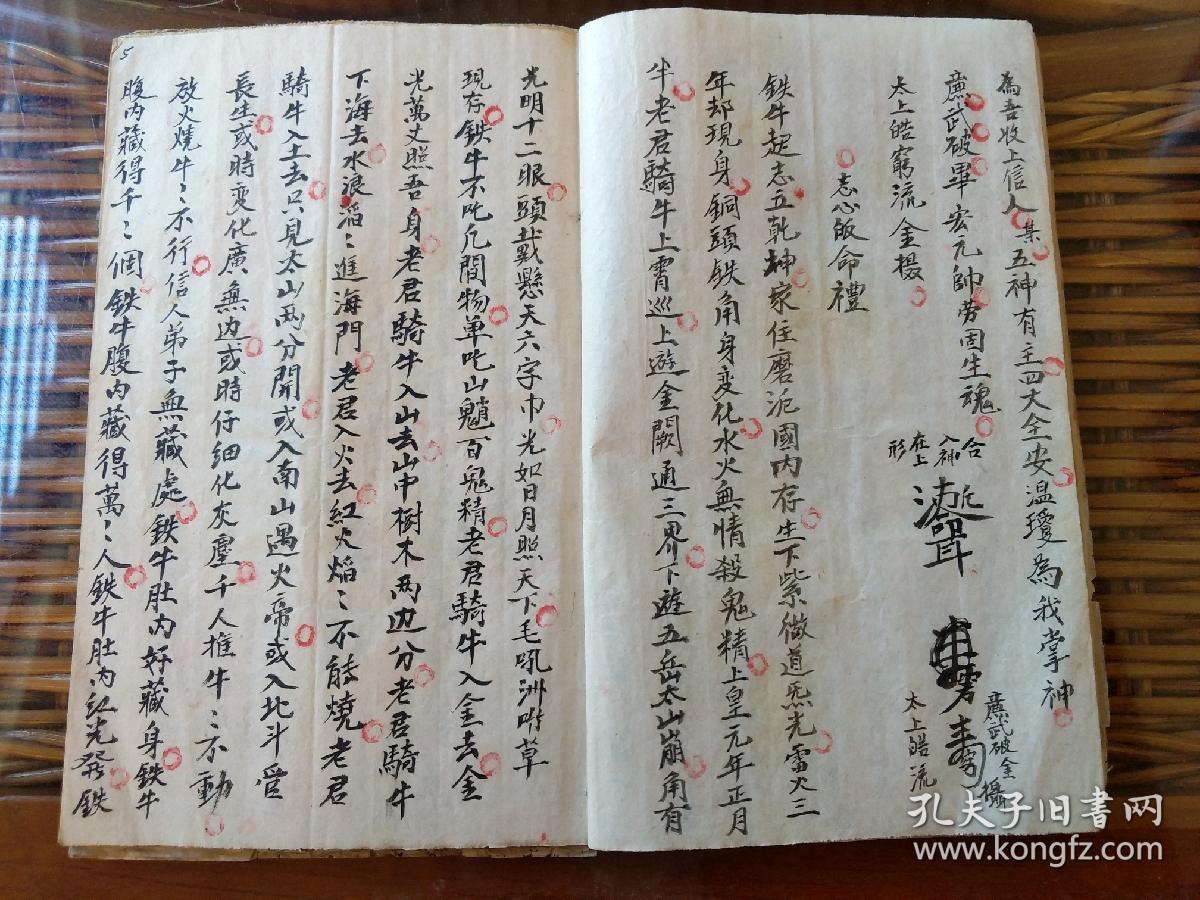 為吾收上信人某五神有主四大全安溫瓊為我掌神
廉武破畢宏元帥劳固生魂
太上皓窮流金摄
合
入神
在上
形
廉武破金攝
太上皓流
志心皈命禮
鉄牛起志立乾坤家住磨泥國内存生下紫微道炁光雷火三
年却現身銅頭鉄角身变化水火無情殺鬼精上皇元年正月
半老君騎牛上霄巡上遊金闕通三界下遊五岳太山崩角有
5
光明十二眼頭戴懸天六字巾光如日月照天下毛吼洲嘶草
現存鉄牛不吃凡間物单吃山魈百鬼精老君騎牛入金去金
光萬丈照吾身老君騎牛入山去山中樹木两边分老君騎牛
下海去水浪滔〻進海門老君入火去紅火焰〻不能燒老君
騎牛入土去只見太山两分開或入南山遇火帝或入北斗受
長生或時变化廣無边或時仔細化灰塵千人推牛〻不動
放火燒牛〻不行信人弟子無藏處鉄牛肚内好藏身鉄牛
腹内藏得千〻個鉄牛腹内藏得萬〻人鉄牛肚内紅光發鉄
孔夫子旧书网
www.kongfz.com